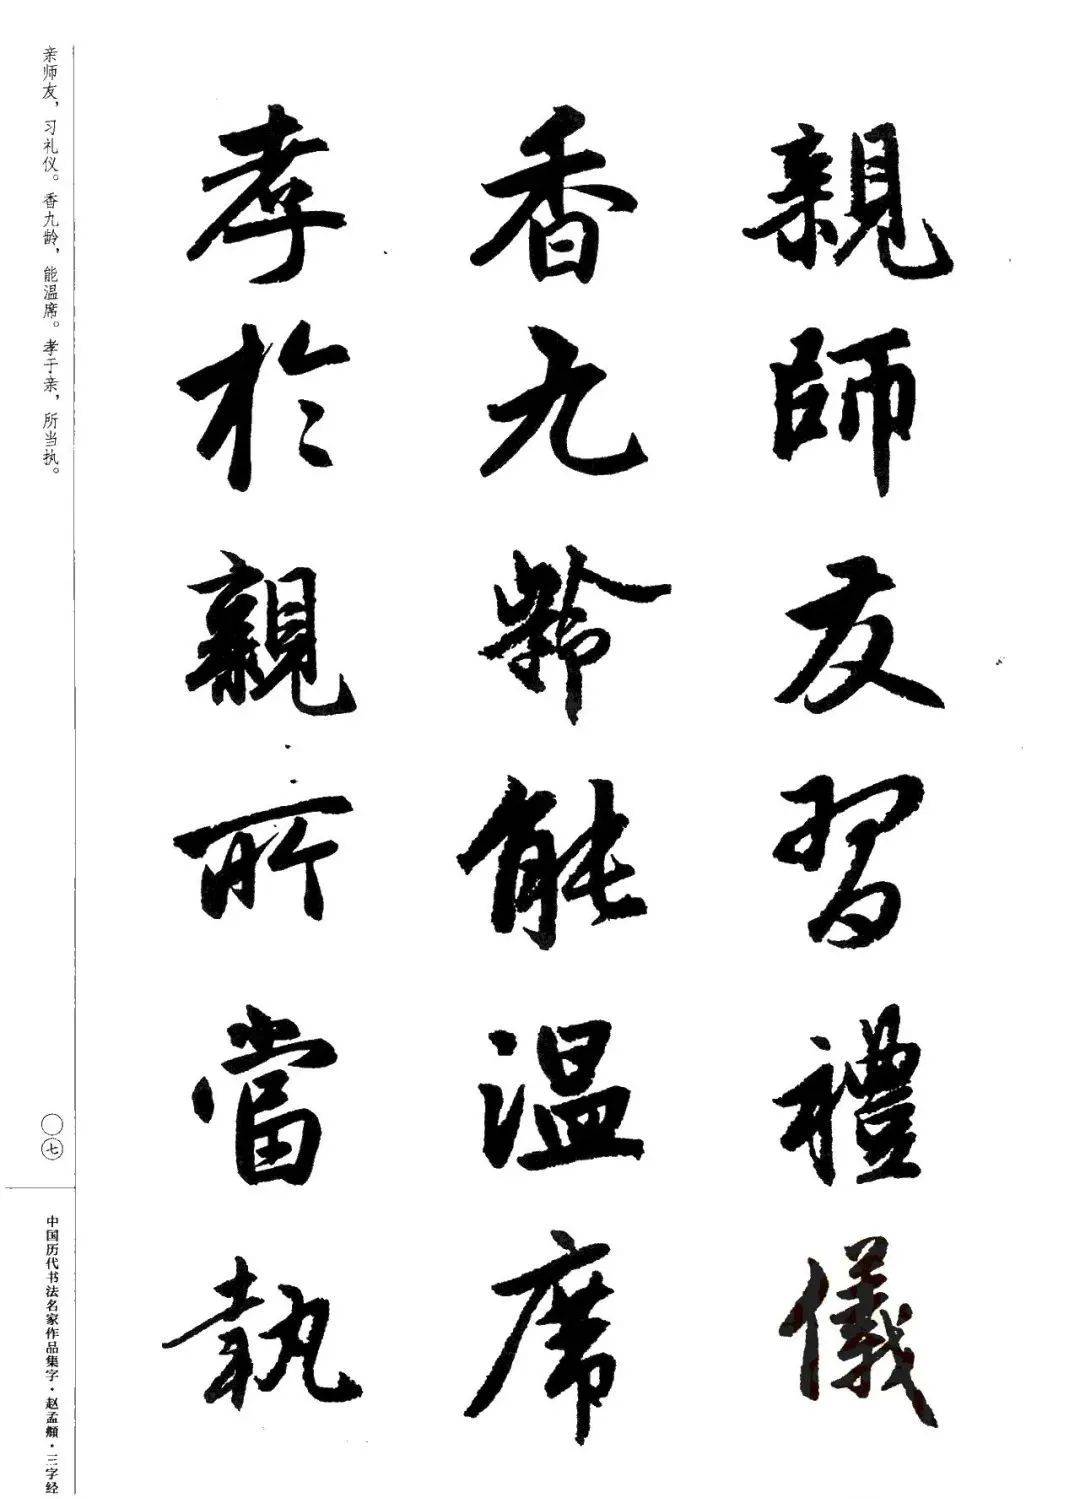 親師友習禮儀
香九齡能温席
孝於親所當執
亲师友，习礼仪。香九龄，能温席。孝于亲，所当执。
〇七
中国历代书法名家作品集字·赵孟頫·三字经